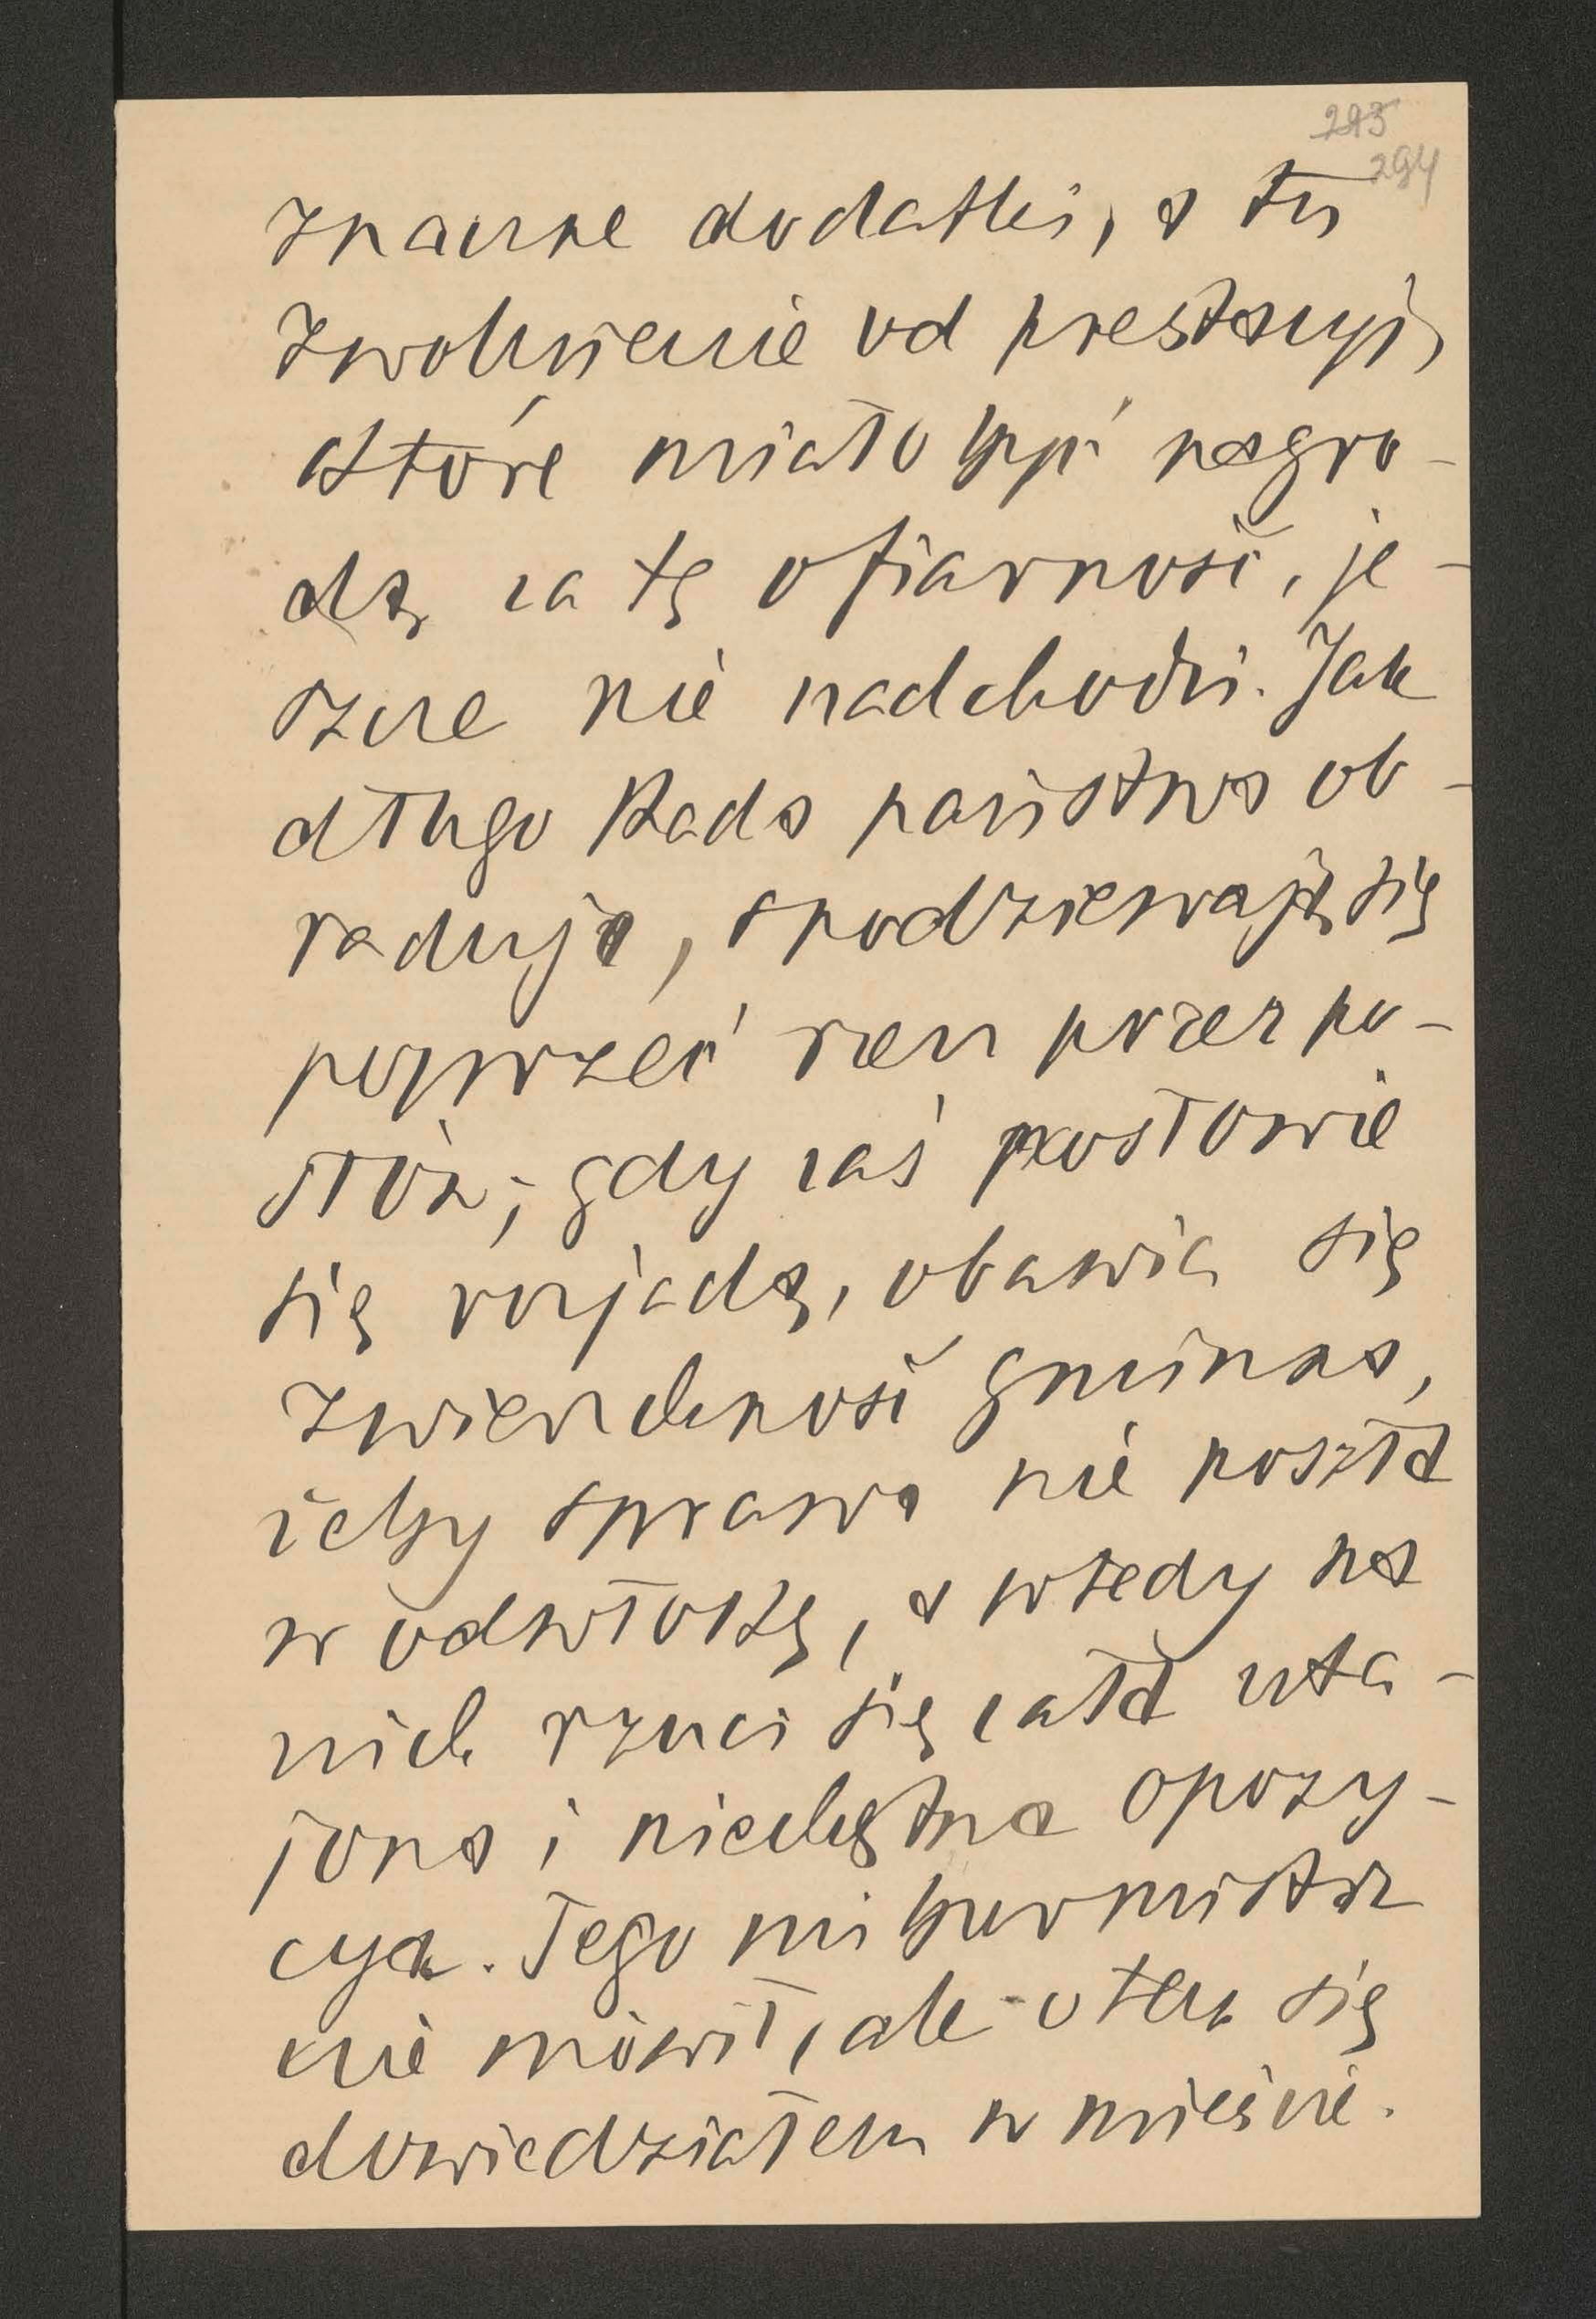 293
294
znaczne dodatki, a tu
zwolnienie od prestacyi,
które miało być nagro-
dą za tę ofiarność, je-
szcze nie nadchodzi. Jak
długo Rada państwa ob-
raduje, spodziewają się
poprzeć rzecz przez po-
słów; gdy zaś posłowie
się rozjadą, obawia się
zwierzchność gminna,
żeby sprawa nie poszła
w odwłokę, a wtedy na
nich rzuci się cała uta-
jona i niechętna opozy-
cya. Tego mi burmistrz
nie mówił, ale o tem się
dowiedziałem w mieście.